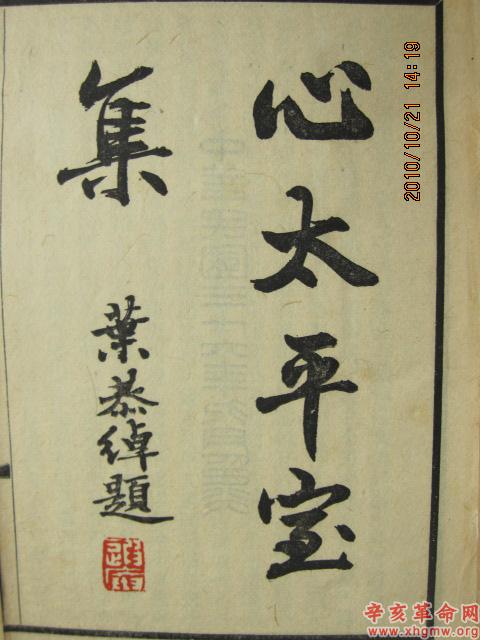 心太平室
集
葉恭綽題
2010/10/21 14:19
辛亥革命网
www.xhgmw.org